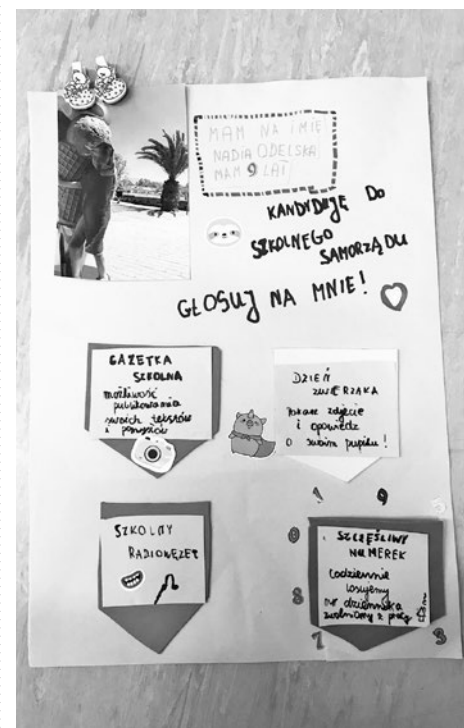 MAM NA IMIĘ
NADIA ODELSKA
MAM 9 LAT
KANDYDUJĘ DO
SZKOLNEGO
SAMORZĄDU
GŁOSUJ NA MNIE!
GAZETKA
SZKOLNA
możliwość
publikowania
swoich tekstów
i pomysłów
DZIEŃ
ZWIERZAKA
Pokaż zdjęcie
i opowiedz
o swoim pupilu!
SZKOLNY
RADIOWĘZEŁ
SZCZĘŚLIWY
NUMEREK
Codziennie
losujemy
nr dziennika
zwolniony z
! 9
0
8
7
3